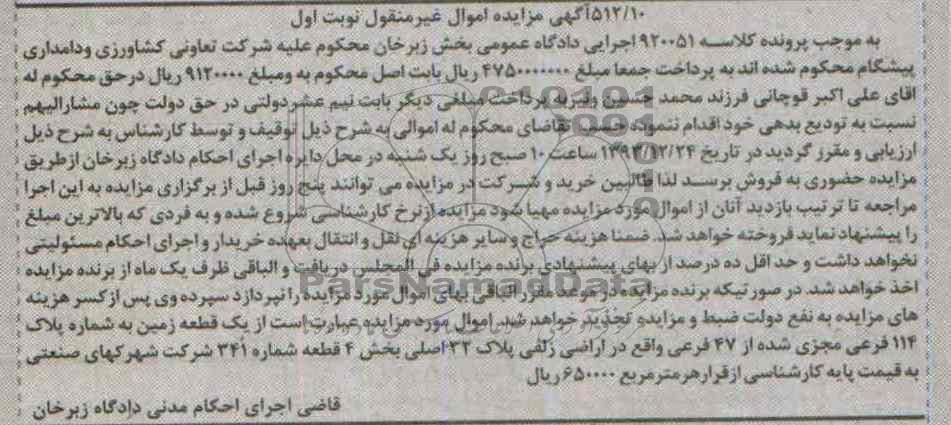 ۵۱۲/۱۰آگهی مزایده اموال غیرمنقول نوبت اول
به موجب پرونده کلاسه ۹۲۰۰۵۱ اجرایی دادگاه عمومی بخش زبرخان محکوم علیه شرکت تعاونی کشاورزی ودامداری
پیشگام محکوم شده اند به پرداخت جمعا مبلغ ۴۷۵۰۰۰۰۰۰۰ ریال بابت اصل محکوم به ومبلغ ۹۱۲۰۰۰۰ ریال درحق محکوم له
اقای علی اکبر قوچانی فرزند محمد حسین ونیزبه پرداخت مبلغی دیگر بابت نیم عشردولتی در حق دولت چون مشارالیهم
نسبت به تودیع بدهی خود اقدام ننموده حسب تقاضای محکوم له اموالی به شرح ذیل توقیف و توسط کارشناس به شرح ذیل
ارزیابی و مقرر گردید در تاریخ ۱۳۹۳/۱۲/۲۴ ساعت ۱۰ صبح روز یک شنبه در محل دایره اجرای احکام دادگاه زبرخان ازطریق
مزایده حضوری به فروش برسد لذا طالبین خرید و شرکت در مزایده می توانند پنج روز قبل از برگزاری مزایده به این اجرا
مراجعه تا ترتیب بازدید آنان از اموال مورد مزایده مهیا شود مزایده ازنرخ کارشناسی شروع شده و به فردی که بالاترین مبلغ
را پیشنهاد نماید فروخته خواهد شد. ضمنا هزینه حراج و سایر هزینه ای نقل و انتقال بعهده خریدار و اجرای احکام مسئولیتی
نخواهد داشت و حد اقل ده درصد از بهای پیشنهادی برنده مزایده فی المجلس دریافت و الباقی ظرف یک ماه از برنده مزایده
اخذ خواهد شد. در صورتیکه برنده مزایده در موعد مقرر الباقی بهای اموال مورد مزایده را نپردازد سپرده وی پس ازکسر هزینه
های مزایده به نفع دولت ضبط و مزایده تجدید خواهد شد. اموال مورد مزایده عبارت است از یک قطعه زمین به شماره پلاک
۱۱۴ فرعی مجزی شده از ۴۷ فرعی واقع در اراضی زلفی پلاک ۳۲ اصلی بخش ۴ قطعه شماره ۳۴۱ شرکت شهرکهای صنعتی
به قیمت پایه کارشناسی ازقرارهرمترمربع ۶۵۰۰۰۰ ریال
قاضی اجرای احکام مدنی دادگاه زبرخان
ParsNamadData